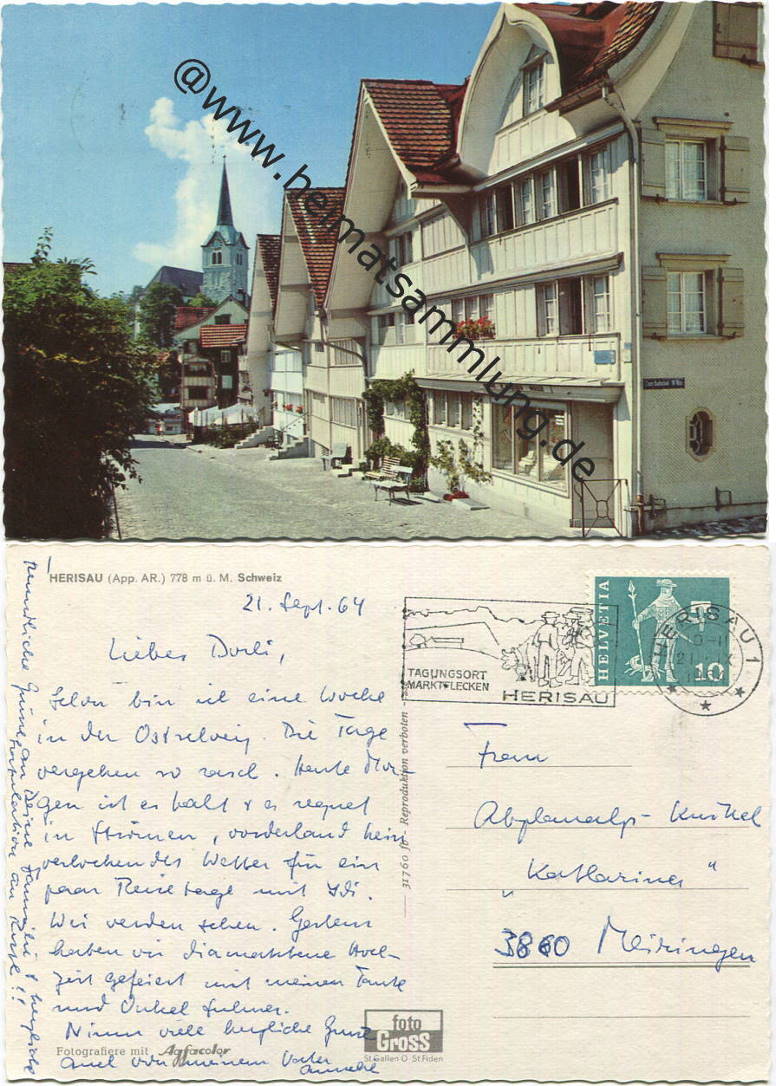 @www.heimatsammlung.de
HERISAU (App. AR.) 778 m ü. M. Schweiz
21. Sept. 64
Liebes Dorli,
Schon bin ich eine Woche
in der Ostschweiz. Die Tage
vergehen so rasch. Heute Mor-
gen ist es kalt & es regnet
in Strömen, vorderhand kein
verlockendes Wetter für ein
paar Reisetage mit Idi.
Wir werden sehen. Gestern
haben wir diamantene Hoch-
zeit gefeiert mit meinen Tante
und Onkel
Nimm viele herzliche Grüsse
auch von meinem Vater
Annelie
an Deine Familie & herzliche
Gratulation
TAGUNGSORT
MARKTFLECKEN
HERISAU
HELVETIA
10
HERISAU 1
31760 Reproduktion verboten
Frau
Abplanalp-Knikel
"Katharina"
3860 Meiringen
foto
GROSS
St. Gallen O - St. Fiden
Fotografiere mit Agfacolor